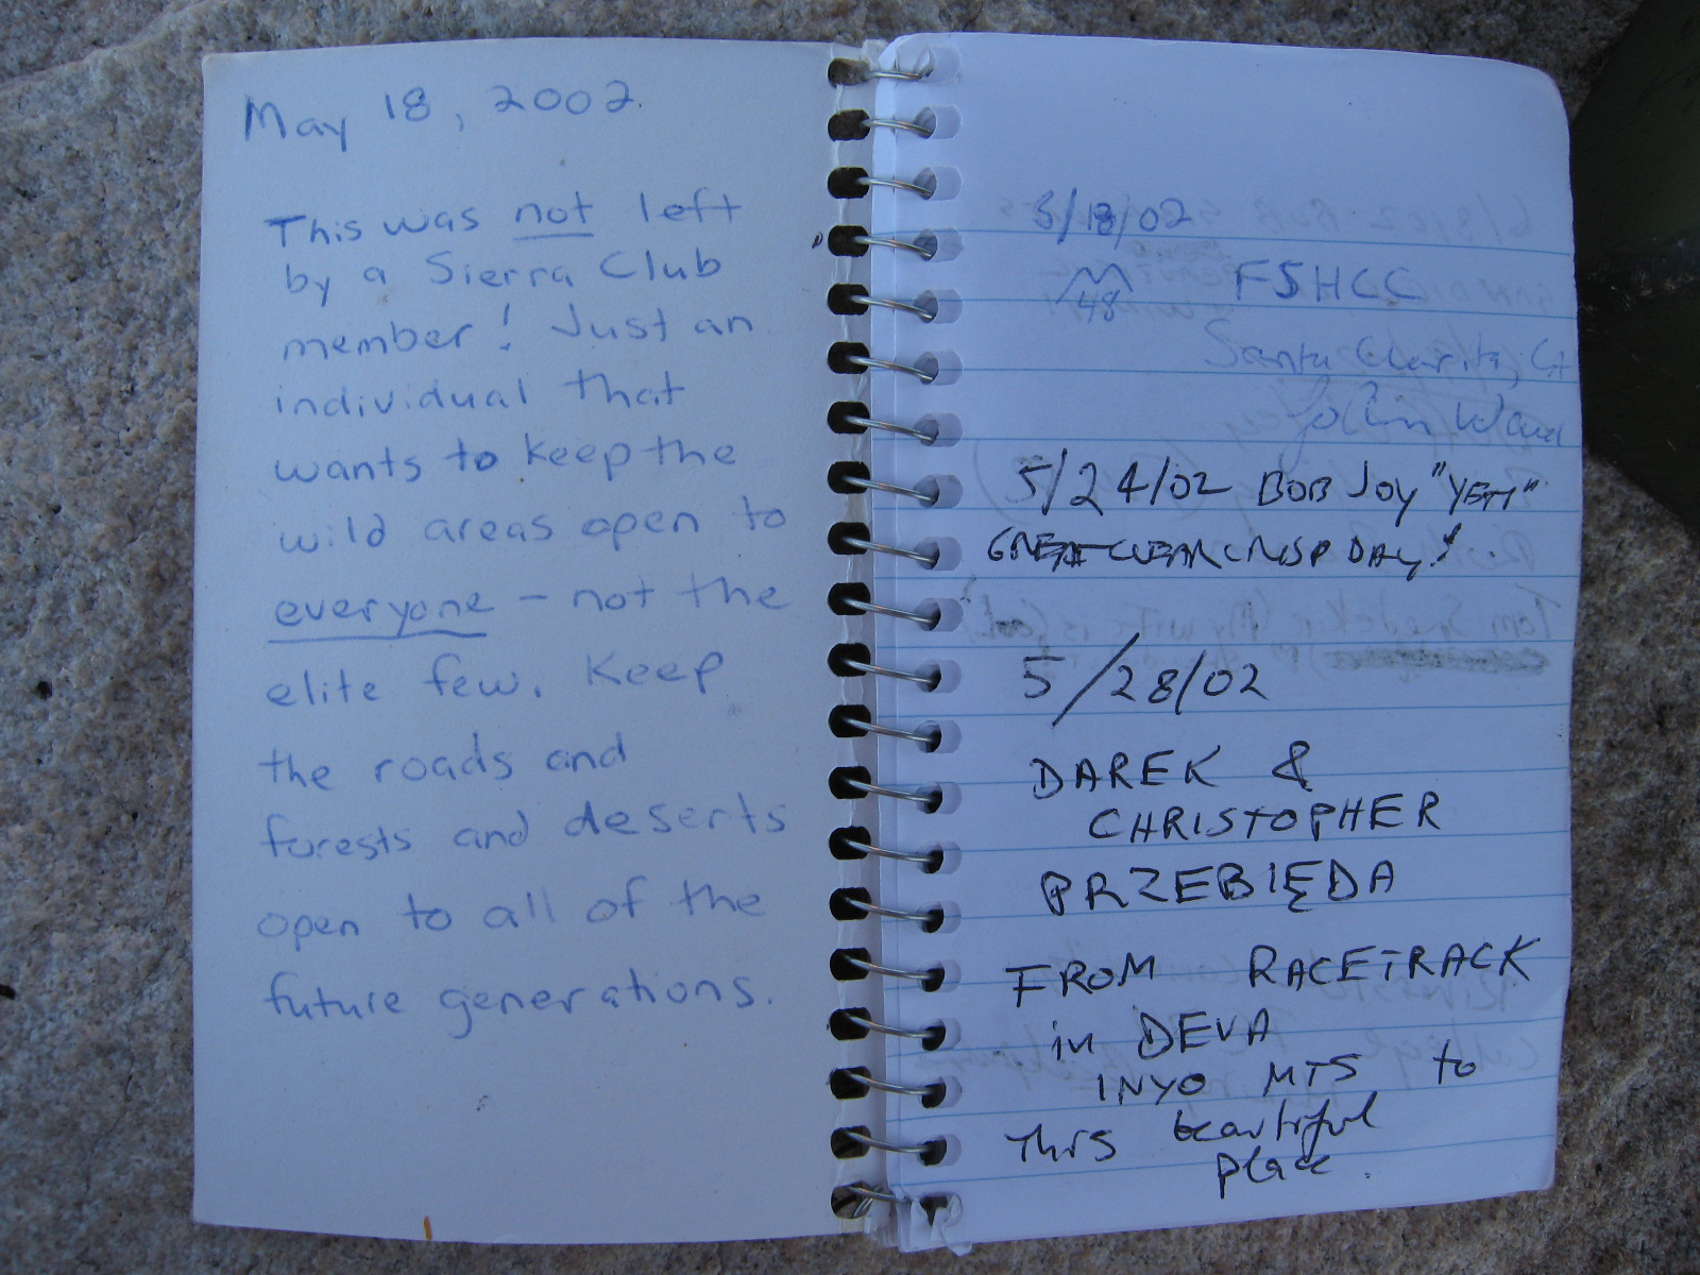 May 18, 2002.
This was not left
by a Sierra Club
member! Just an
individual that
wants to keep the
wild areas open to
everyone - not the
elite few. Keep
the roads and
forests and deserts
open to all of the
future generations.
5/18/02
48 FSHCC
Santa Clarita, CA
John Ward
5/24/02 BOB JOY "YETI"
GREAT CLEAR CRISP DAY!
5/28/02
DAREK &
CHRISTOPHER
PRZEBIĘDA
FROM RACETRACK
in DEVA
INYO MTS to
This beautiful
place.